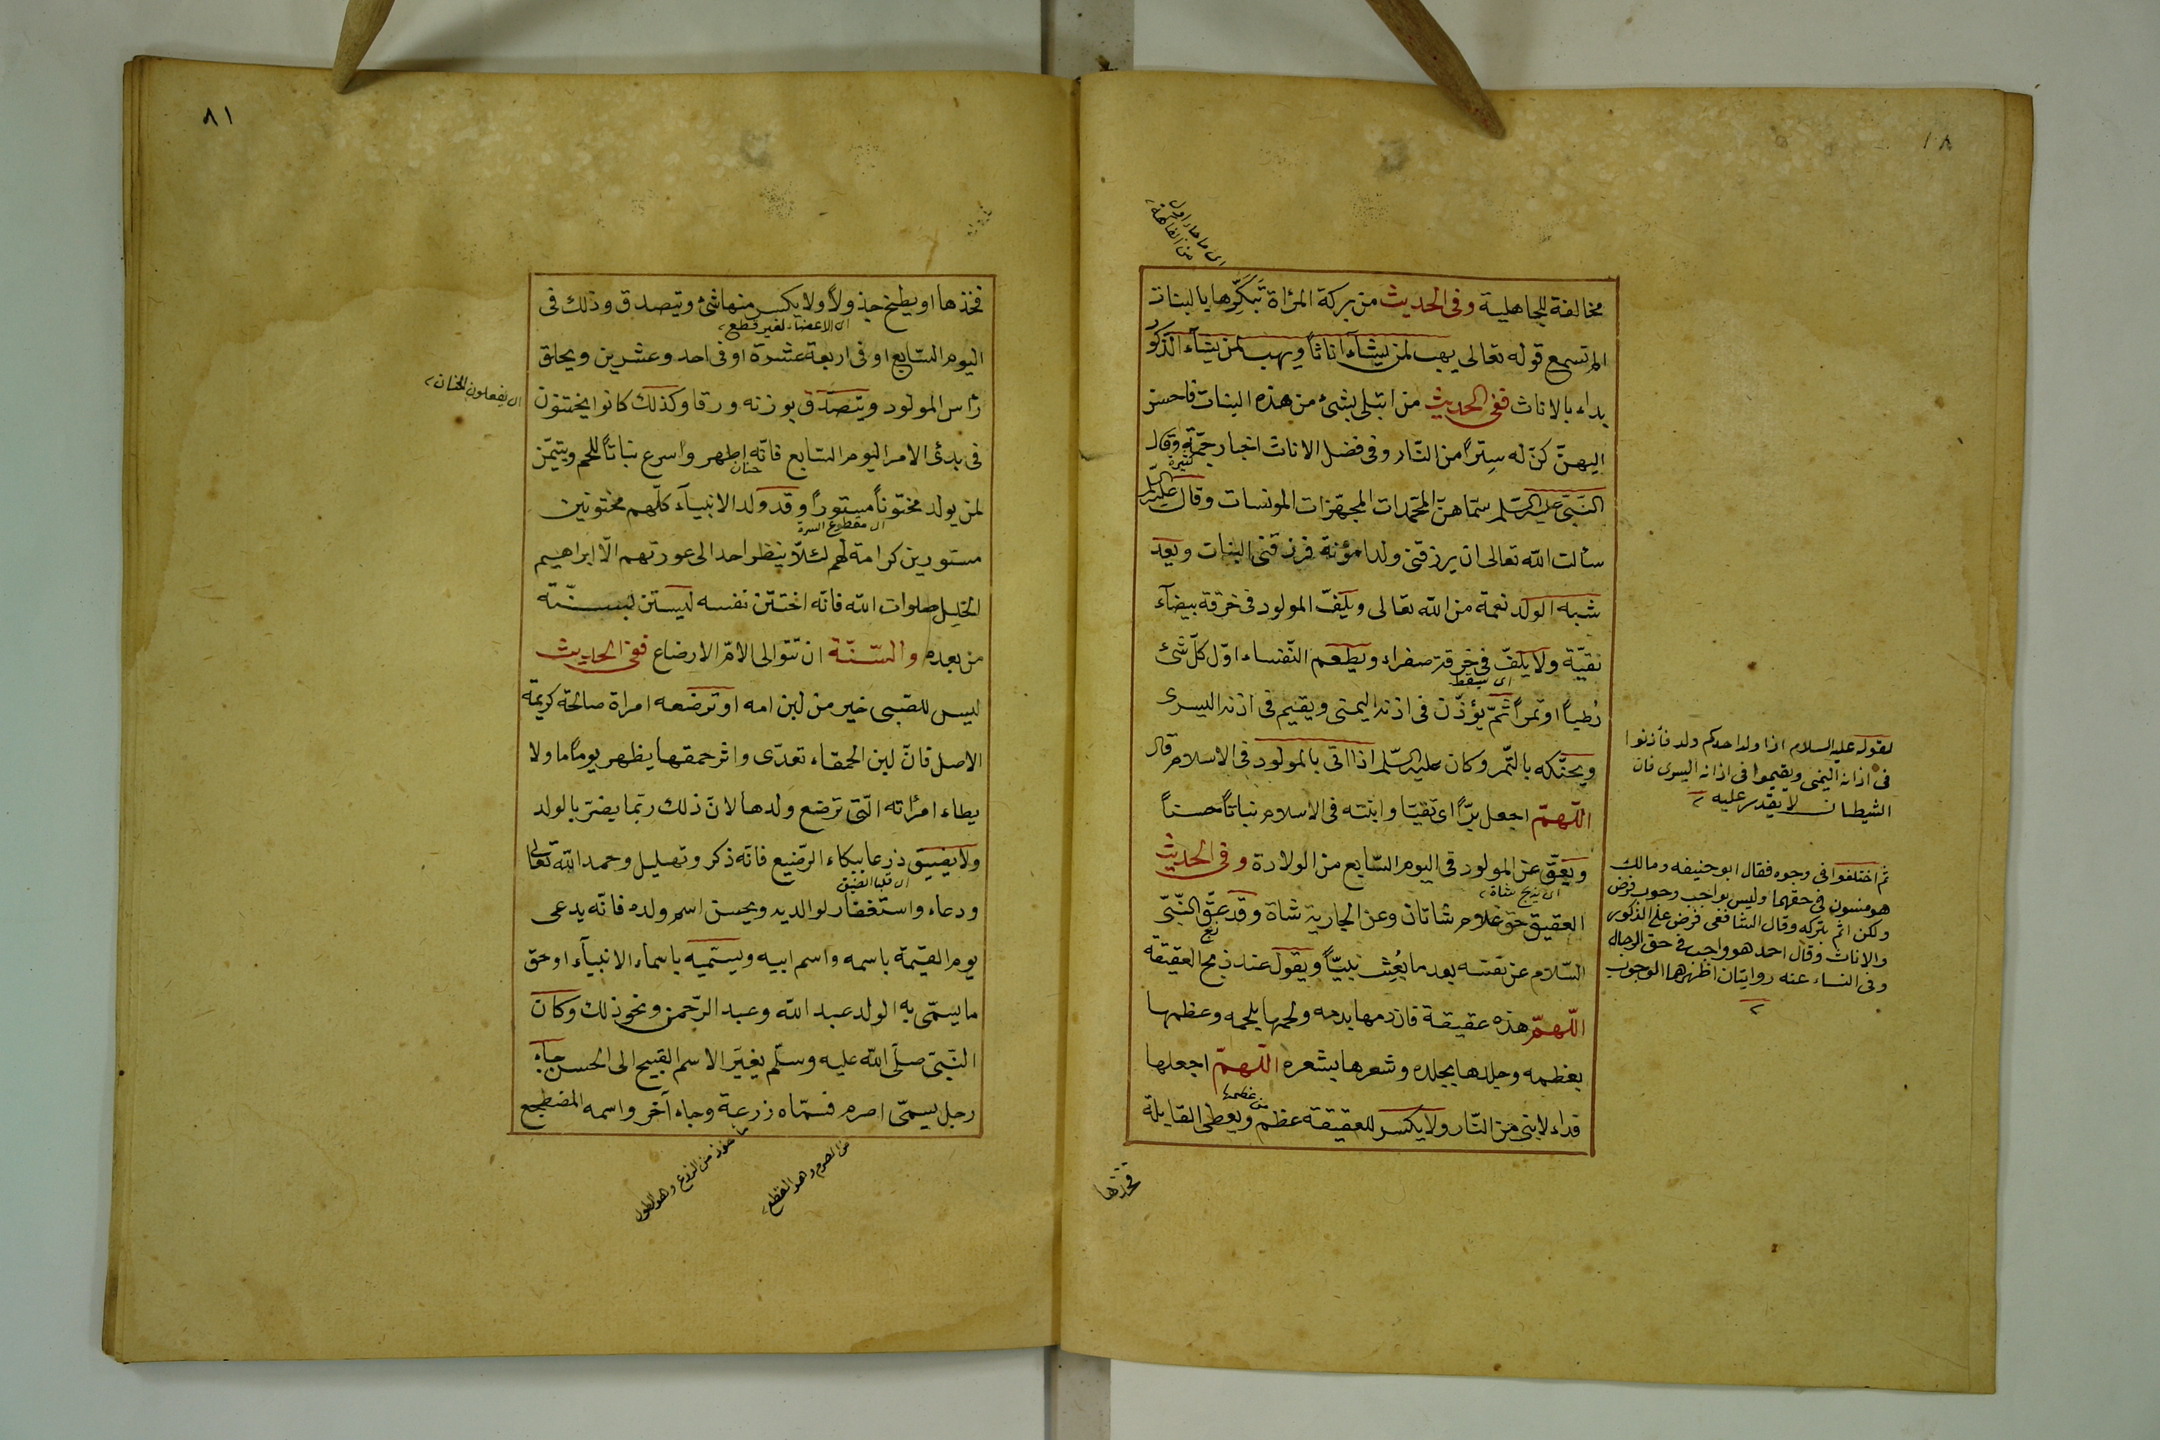 مخالفة للجاهلية وفى الحديث من بركة المرأة تبكيرها بالبنات
الم تسمع قوله تعالى يهب لمن يشآء اناثاً ويهب لمن يشآء الذكور
بداء بالاناث ففى الحديث من ابتلى بشئ من هذه البنات فاحسن
اليهنّ كنّ له سِتراً من النّار وفى فضل الاناث اخبار جمّة وقال
كثيرة
النّبىّ عليه السّلم سمّاهنّ المجهّزات المونسات وقال عليه السّلم
سألت الله تعالى ان يرزقنى ولدا مؤنة فرزقنى البنات ويعد
شبه الولد نعمة من الله تعالى ويلفّ المولود فى خرقة بيضآء
نقيّة ولا يلفّ فى خرقة صفراء ويطعم النّفساء اوّل كلّ شئ
رُطباً او تمراً ثمّ يؤذّن فى اذنه اليمنى ويقيم فى اذنه اليسرى
ويحنّكه بالتّمر وكان عليه السّلم اذا اتى بالمولود فى الاسلام قال
اللّهمّ اجعل برًّا اى تقيّا وابنته فى الاسلام نباتاً حسناً
ويعقّ عن المولود فى اليوم السّابع من الولادة وفى الحديث
اى يذبح شاة
العقيق حق غلام شاتان وعن الجارية شاة وقد عقّ النّبىّ
السّلام عن نفسه بعد ما بُعِث نبيّاً ويقول عند ذبح العقيقة
اللّهمّ هذه عقيقة فان دمها بدمه ولحمها بلحمه وعظمها
بعظمه وجلدها بجلده وشعرها بشعره اللّهمّ اجعلها
فداء لابنى من النّار ولا يكسر للعقيقة عظم ويعطى القابلة
من عظمها
فخذها
لقوله عليه السلام اذا ولد احدكم ولد فأذنوا
فى اذانه اليمنى ويقيموا فى اذانه اليسرى فان
الشيطان لا يقدر عليه
ثم اختلفوا فى وجوه فقال ابو حنيفه ومالك
هو مسنون فى حقهما وليس بواجب وجوب فرض
ولكن اثم بتركه وقال الشافعى فرض على الذكور
والاناث وقال احمد هو واجب فى حق الرجال
وفى النساء عنه روايتان اظهرهما الوجوب
٨١
فخذها او يطبخ جذولاً ولا يكسر منها شئ ويتصدق وذلك فى
اليوم السّابع او فى اربعة عشرة او فى احد وعشرين ويحلق
رأس المولود ويتصدّق بوزنه ورقا وكذلك كانوا يختنون
اى يفعلون الختان
فى بدئ الامر اليوم السّابع فانّه اطهر واسرع نباتاً للحم ويتيمّن
ختان
لمن يولد مختوناً مستوراً وقد ولد الانبيآء كلّهم مختونين
اى مقطوع السرة
مستورين كرامة لهم لئلاّ ينظر احد الى عورتهم الّا ابراهيم
الخليل صلوات الله فانّه اختتن نفسه ليستن بسنّته
من بعده والسّنّة ان تتوالى الامّ الارضاع ففى الحديث
ليس للصّبى خير من لبن امه او ترضعه امراة صالحة كريمة
الاصل فانّ لبن الحمقاء تعدّى واثر حمقها يظهر يوماً ما ولا
يطاء امرأته الّتى ترضع ولدها لانّ ذلك ربّما يضرّ بالولد
ولا يضيق ذرعا ببكاء الرّضيع فانّه ذكر وتهليل وحمد الله تعالى
ودعاء واستغفار لوالديه ويحسن اسم ولده فانّه يدعى
يوم القيمة باسمه واسم ابيه ويسمّيه باسماء الانبيآء او حق
ما يسمّى به الولد عبد الله وعبد الرّحمن ونحو ذلك وكان
النّبىّ صلّى الله عليه وسلّم يغيّر الاسم القبيح الى الحسن جاء
رجل يسمّى اصرم فسمّاه زرعة وجاء آخر واسمه المضطجع
من الصرم وهو القطع
ماخوذ من الزرع